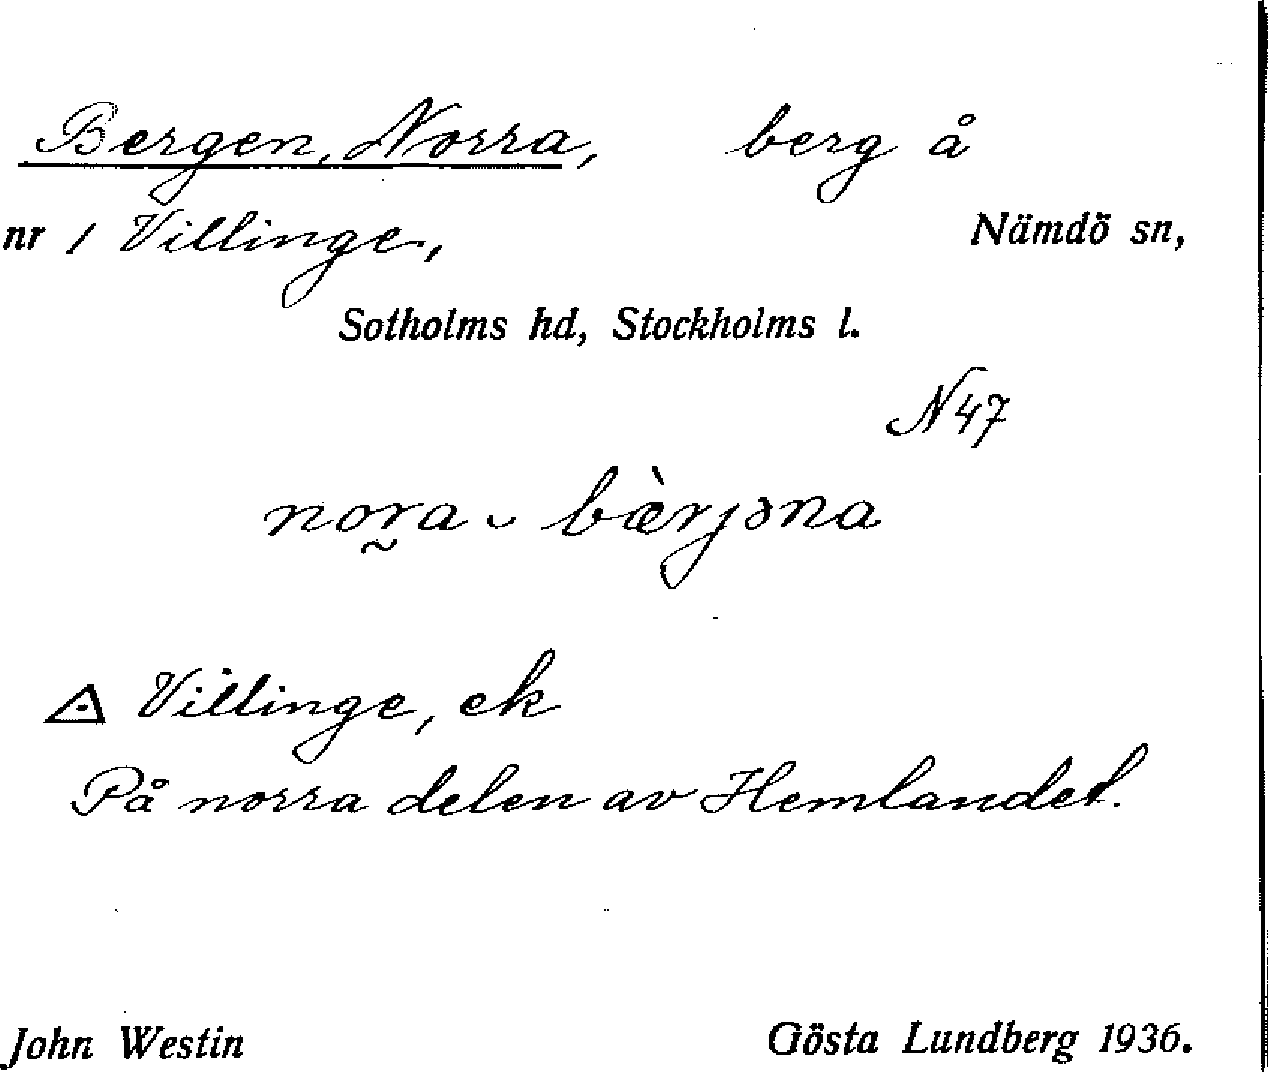 Bergen, Norra, berg å
nr 1 Villinge, Nämdö sn,
Sotholms hd, Stockholms l.
N47
nor̰a ᴗ bæ̀rjəna
Villinge, ek
På norra delen av Hemlandet.
John Westin Gösta Lundberg 1936.